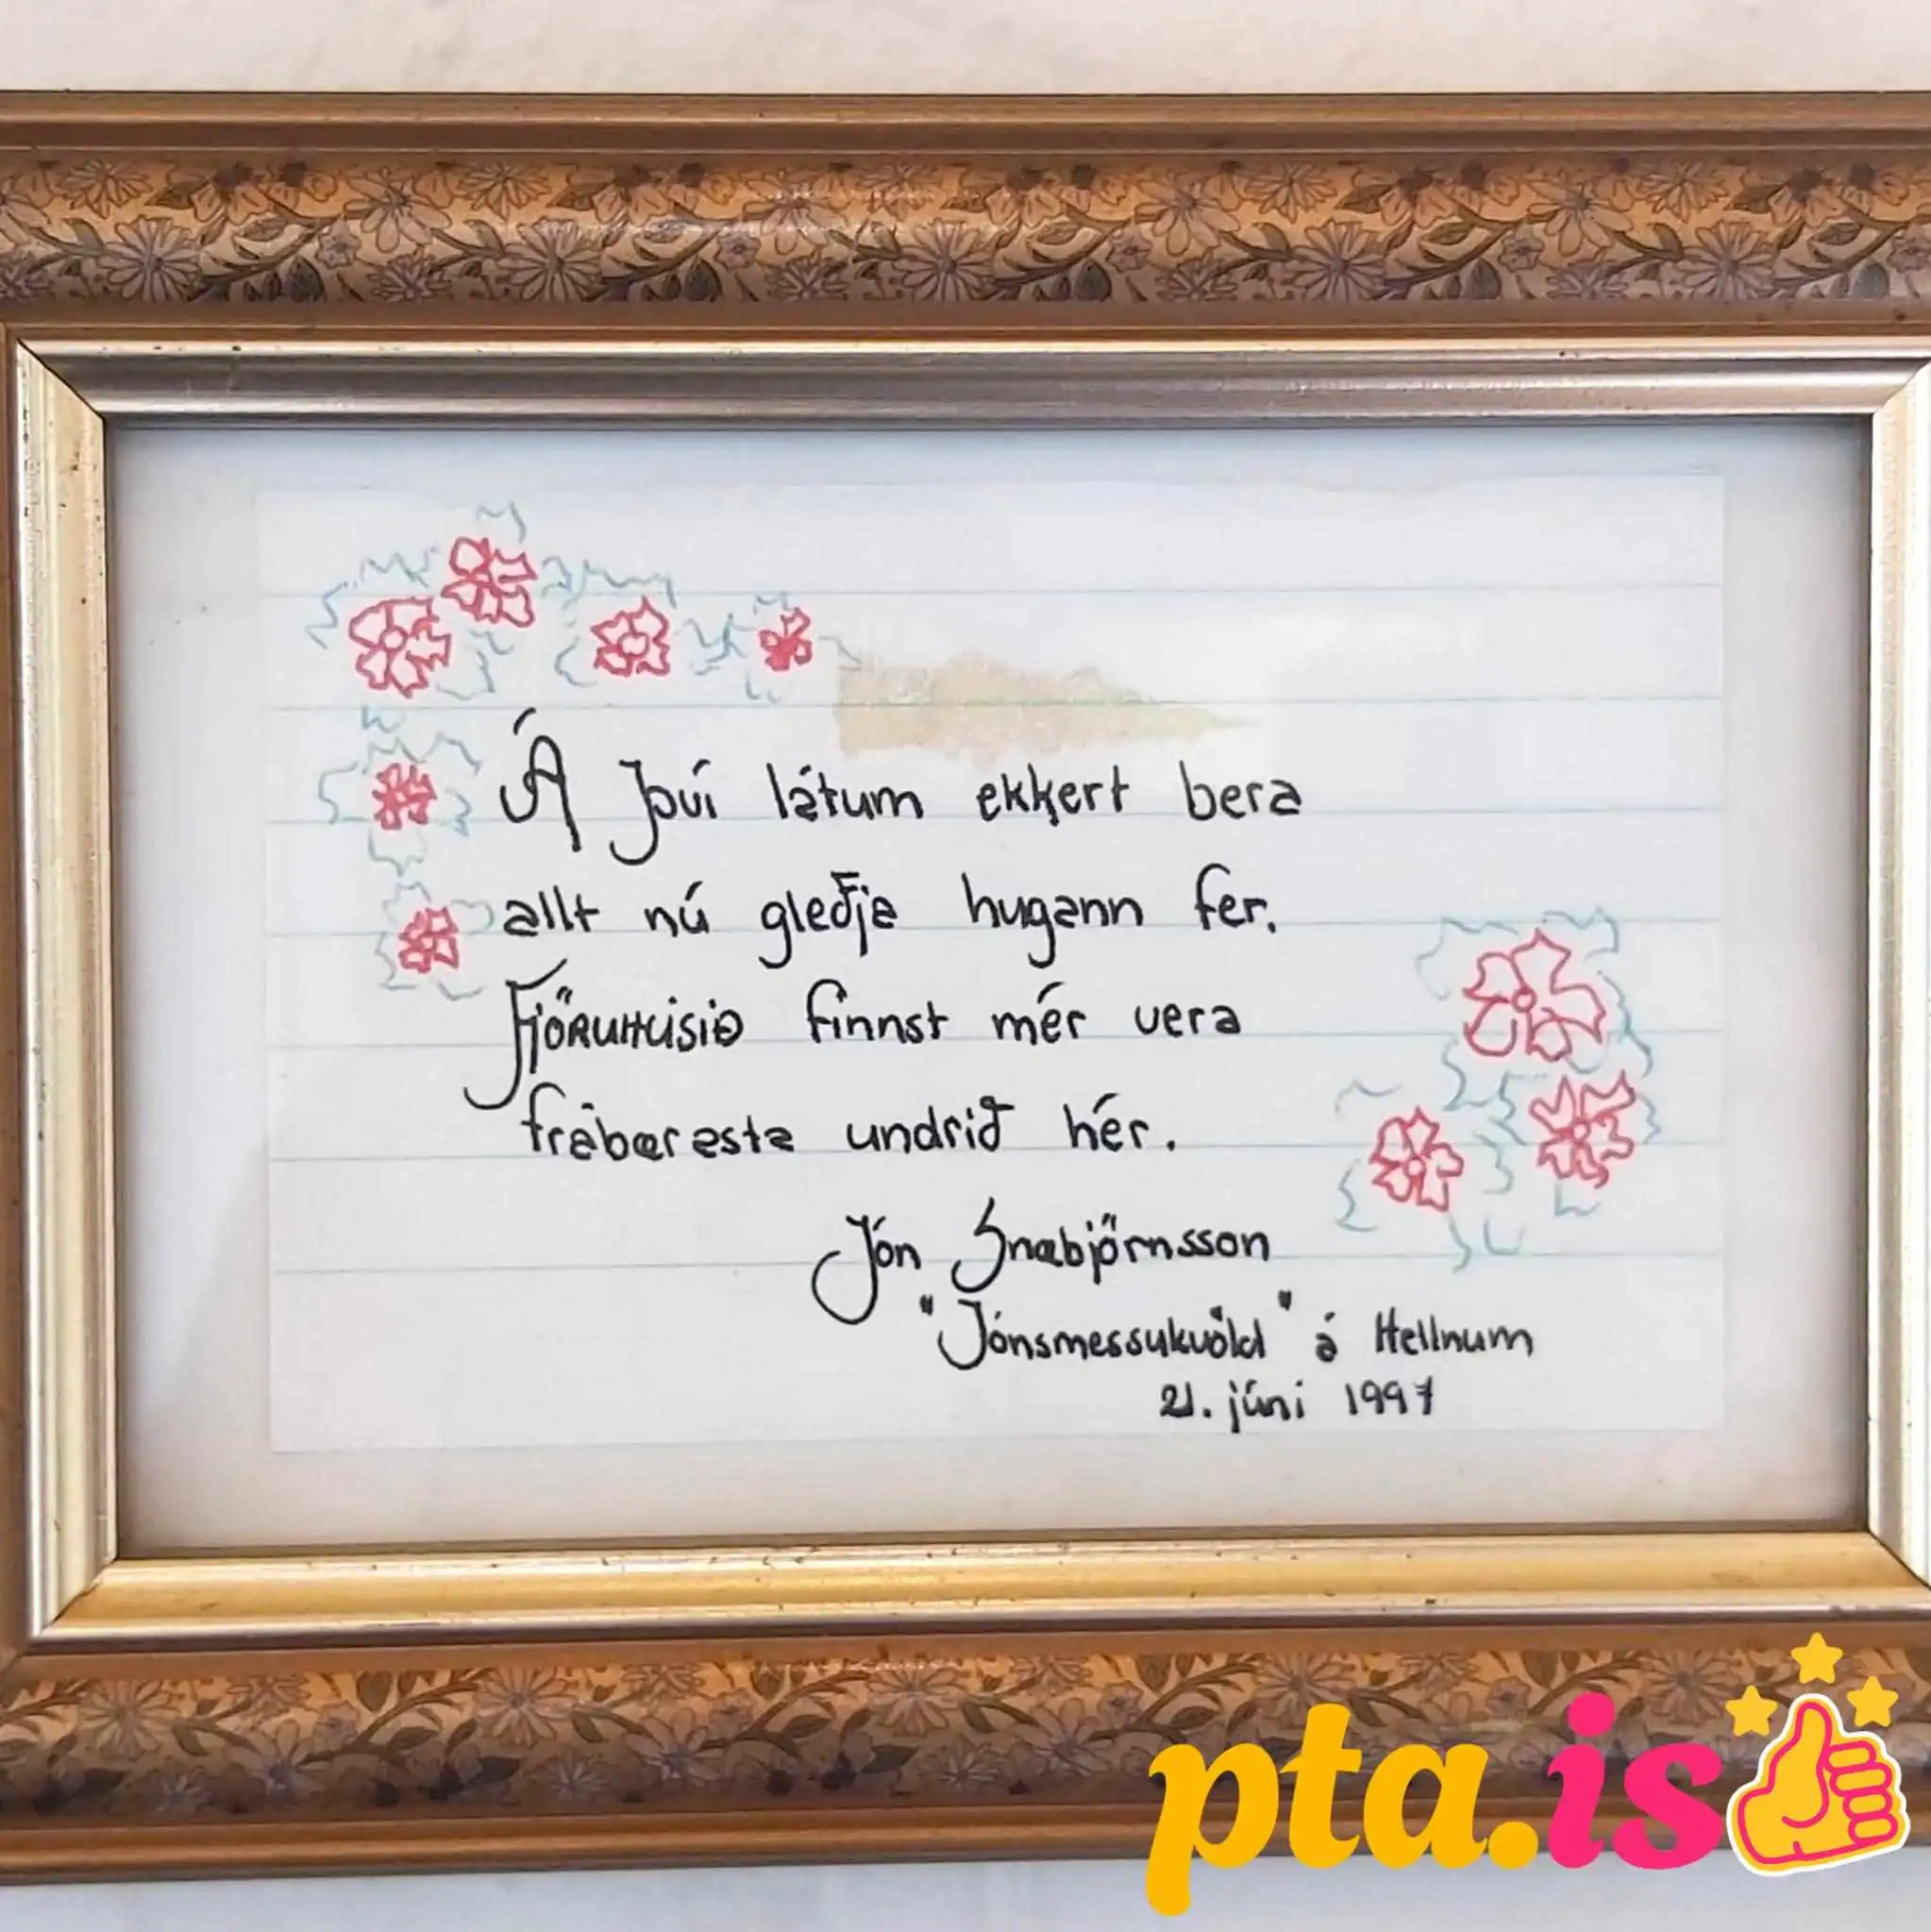 Á því látum ekkert bera
allt nú gleðja hugann fer.
Fjöruhúsið finnst mér vera
frábærasta undrið hér.
Jón Snæbjörnsson
"Jónsmessukvöld" á Hellnum
21. júní 1997
pta.is